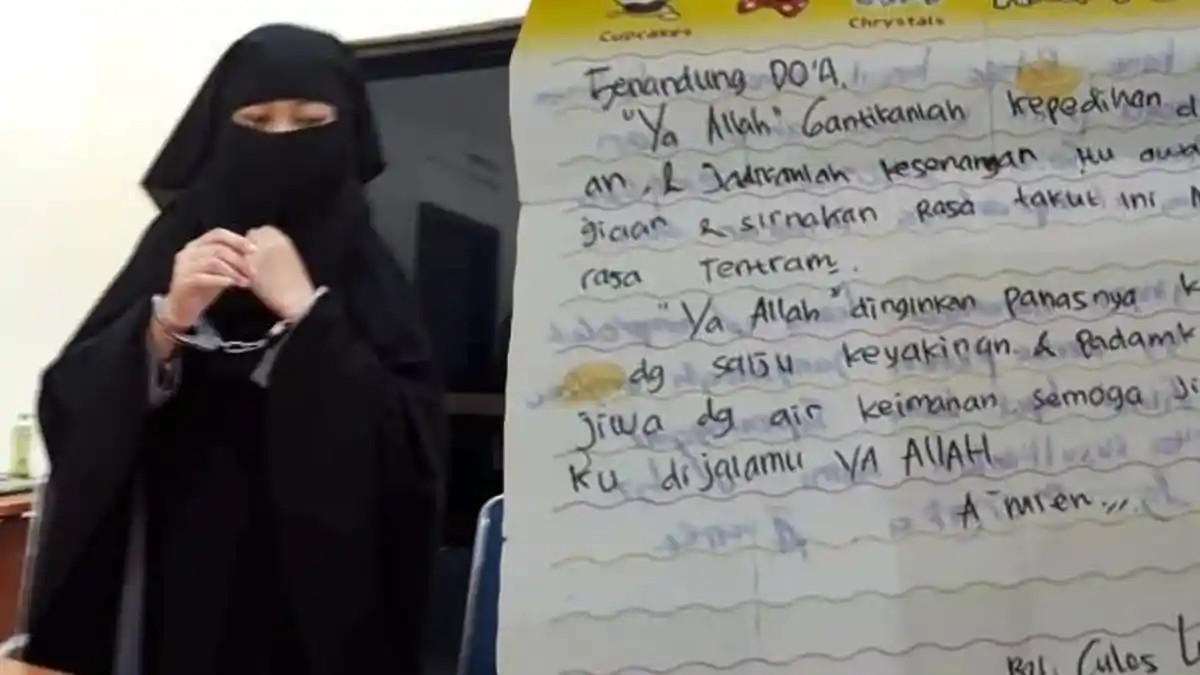 Cupcakes
Chrystals
Senandung DO'A.
"Ya Allah" Gantikanlah kepedihan
an, & Jadikanlah kesenangan
giaan & sirnakan Rasa takut ini
rasa Tentram.
"Ya Allah" dinginkan panasnya
dg salju keyakinan & padamk
jiwa dg air keimanan semoga
ku dijalamu YA ALLAH
Aimien...